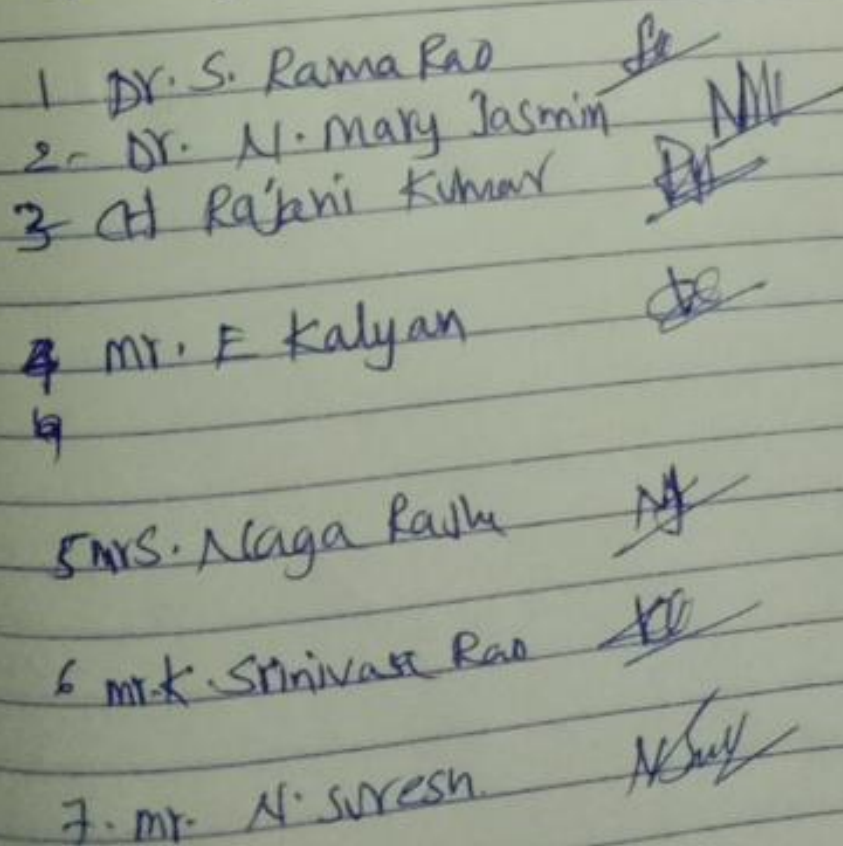 1 Dr. S. Rama Rao
2- Dr. N. Mary Jasmin NM
3 CH Rajani Kumar
4 mr. E Kalyan
4
5 mrs. Naga Raju
6 mr. K. Srinivasa Rao
7. mr. N. Suresh. NSur